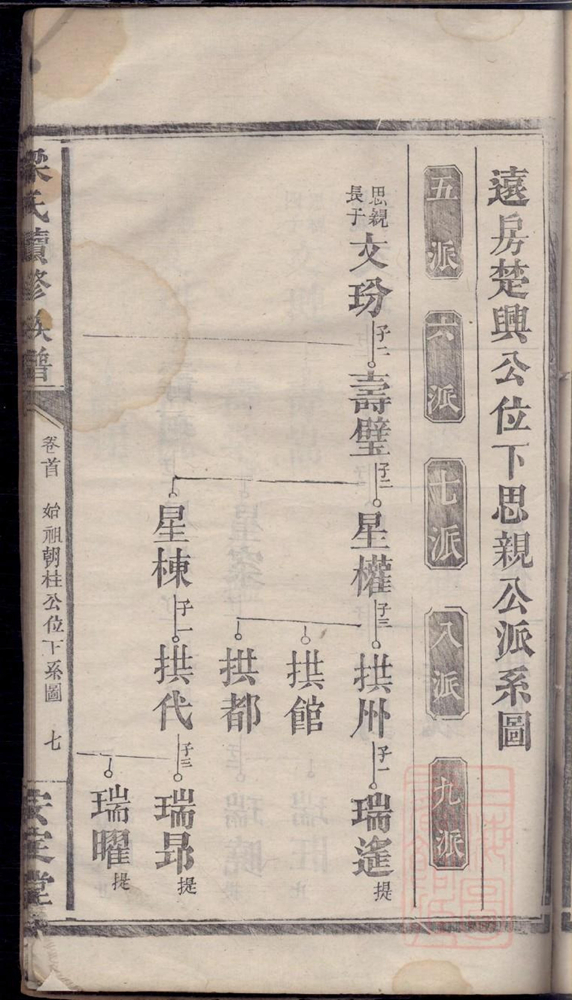 遠房楚興公位下思親公派系圖
五派
六派
七派
八派
九派
思親
長子
文玢
子二
壽璧
子二
星權
子三
拱州
子一
瑞遙
提
拱館
拱都
星棟
子一
拱代
子三
瑞昂
提
瑞曜
提
梁氏續修族譜
卷首
始祖朝柱公位下系圖
七
安定堂